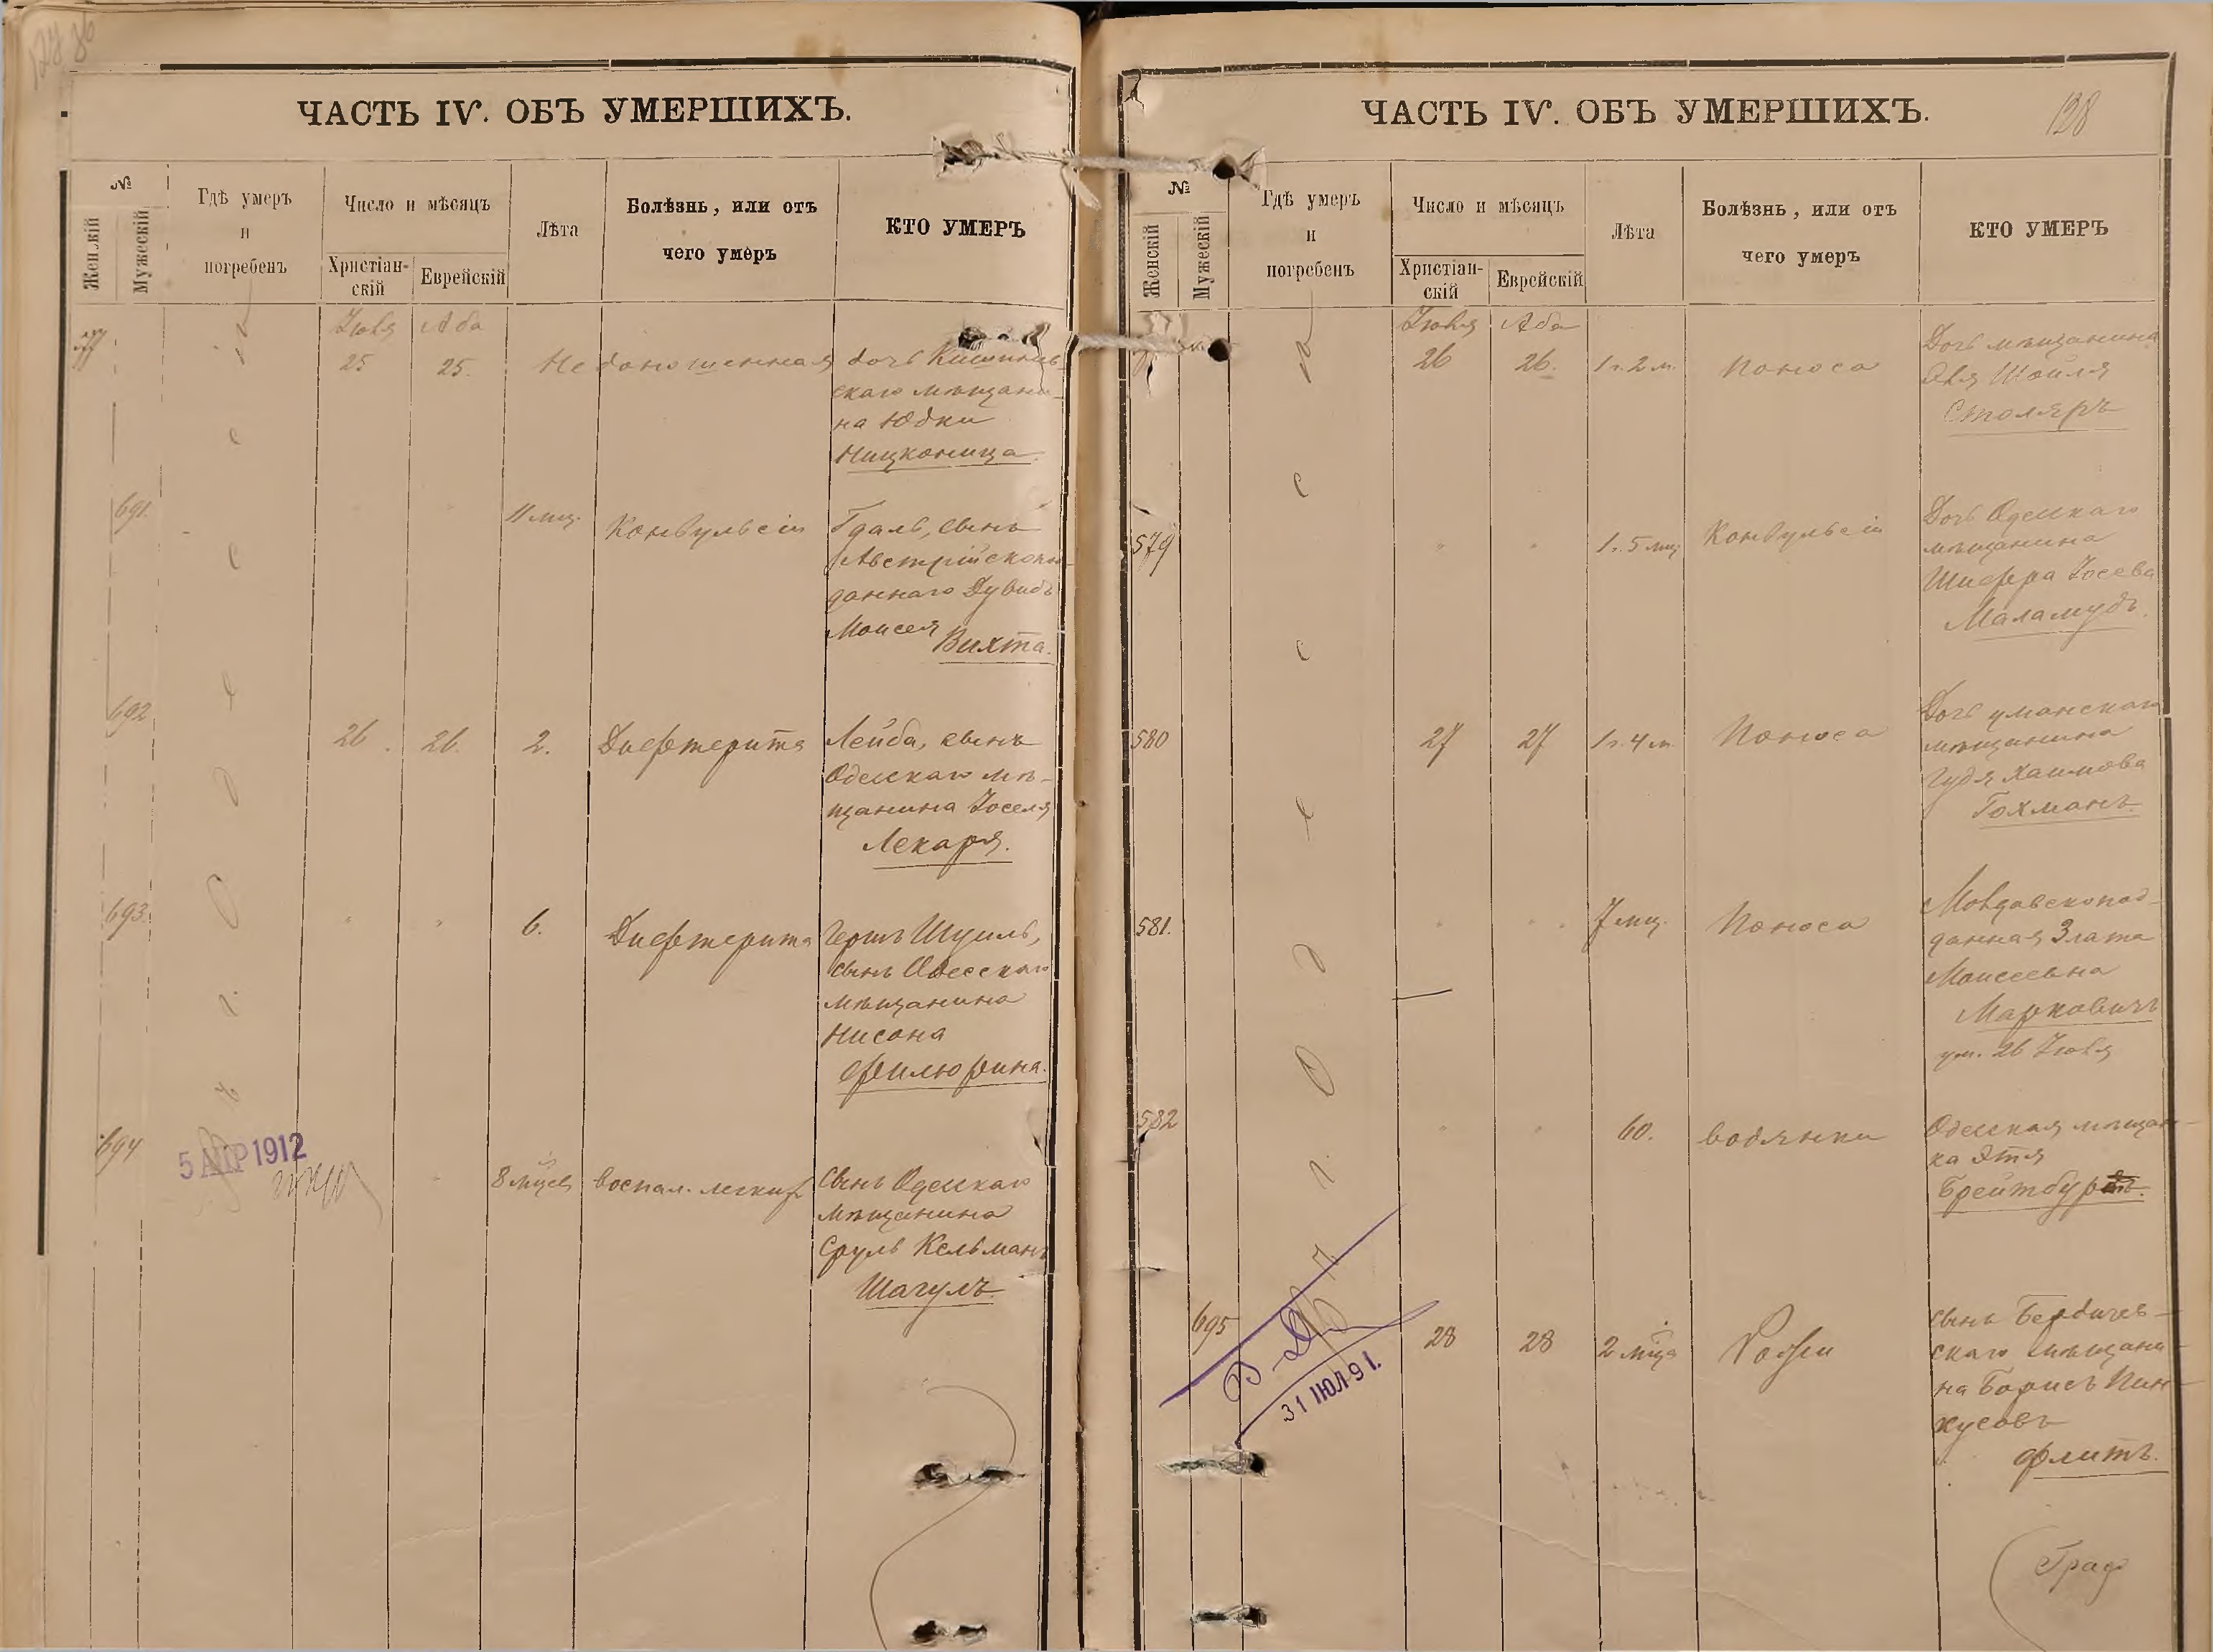 ЧАСТЬ IV. ОБЪ УМЕРШИХЪ.
№
Женскій
Мужескій
Гдѣ умеръ
и
погребенъ
Число и мѣсяцъ
Христіан-
скій
Еврейскій
Лѣта
Болѣзнь, или отъ
чего умеръ
КТО УМЕРЪ
Іюля Аба
577 25 25. Недоношенная дочь Кишинев-
скаго мѣщани-
на Юдки
Ницконица.
691. 11 мц. Конвульсіи Гдаль, сынъ
Австрійскопо-
даннаго Дувидъ
Моисея
Вихта.
692 26. 26. 2. Дифтерита Лейба, сынъ
Одесскаго мѣ-
щанина Іоселя
Лекаря.
693. " " 6. Дифтерита Гершъ Шуиль,
сынъ Одесскаго
мѣщанина
Нисона
Филюрина.
694 8 мцев воспал. легкихъ Сынъ Одесскаго
мѣщанина
Сруль Кельманъ
Шагулъ.
Одесса
5 АПР 1912
ЧАСТЬ IV. ОБЪ УМЕРШИХЪ.
128
№
Женскій
Мужескій
Гдѣ умеръ
и
погребенъ
Число и мѣсяцъ
Христіан-
скій
Еврейскій
Лѣта
Болѣзнь, или отъ
чего умеръ
КТО УМЕРЪ
Іюля Аба
26 26. 1 г. 2 м. Поноса Дочь мѣщанина
Шоиля
Столяръ
579 " " 1 г. 5 мц. Конвульсіи Дочь Одесскаго
мѣщанина
Шифра Іосева
Маламудъ.
580 27 27 1 г. 4 м. Поноса Дочь уманскаго
мѣщанина
Гудя Хаимова
Гохманъ.
581. " " 7 мц. Поноса Молдавскопод-
данная Злата
Моисеевна
Марковичъ
ум. 26 Іюля
582 " " 60. водянки Одесская мѣщан-
ка Этя
Брейтбур
695 28 28 2 мца Рожи сынъ Бердичев-
скаго мѣщани-
на Борисъ Пин-
кусовъ
Флитъ.
Одесса
31 ІЮЛ 91.
Граф